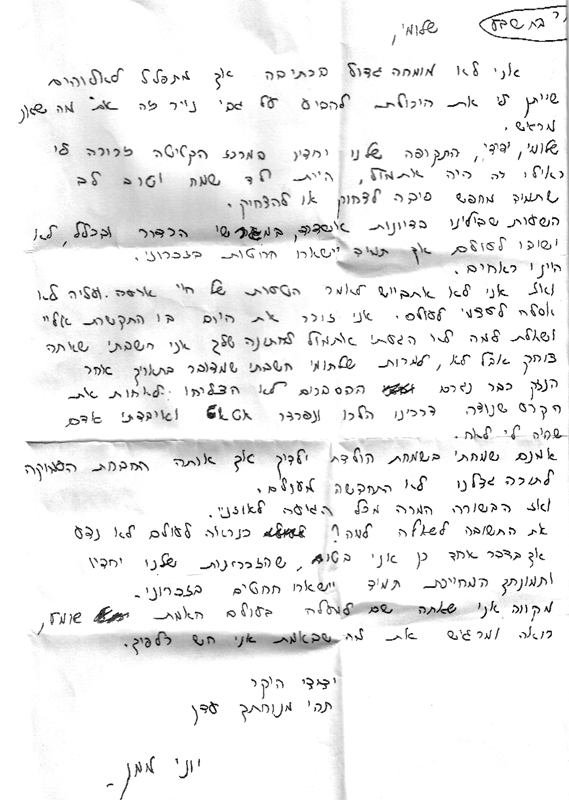 בת שבע
שלומי,
אני לא מומחה גדול בכתיבה אך מתפלל לאלוהים
שייתן לי את היכולת להביע על גבי נייר זה את מה שאני
מרגיש.
שלומי, ידידי, התקופה שלנו יחדיו במרכז הקליטה זכורה לי
כאילו זה היה אתמול, היית ילד שמח וטוב לב
שתמיד מחפש סיבה לצחוק או להצחיק.
השעות שבילינו בדיונות אשדוד, במגרשי הכדור ובכלל, לא
ישובו לעולם אך תמיד יישארו חרוטות בזכרוני.
היינו כאחים.
ואז אני לא אתבייש לאמר הטעות של חיי ארעה. ועליה לא
אסלח לעצמי לעולם. אני זוכר את היום בו התקשרת אליי
ושאלת למה לא הגעתי אתמול לחתונה שלך אני חשבתי שאתה
צוחק אבל לא, למרות שלתומי חשבתי שמדובר בתאריך אחר
הנזק כבר נגרם ההסברים לא הצליחו לאחות את
הקרע שנוצר. דרכינו הלכו ונפרדו ואיבדתי אדם
שהיה לי לאח.
אמנם שמחתי בשמחת הולדת ילדיך אך אותה החברות העמוקה
לתוכה גדלנו לא התחדשה מעולם.
ואז הבשורה המרה מכל הגיעה לאוזני.
את התשובה לשאלה למה? כנראה לעולם לא נדע
אך בדבר אחד כן אני בטוח, שהזכרונות שלנו יחדיו
ותמונתך המחייכת תמיד יישארו חרוטים בזכרוני.
מקווה אני שאתה שם למעלה בעולם האמת שומע,
רואה ומרגיש את מה שבאמת אני חש כלפיך.
ידידי היקר
תהי מנוחתך עדן
יוני ממן